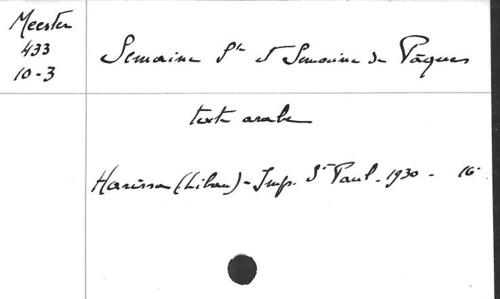 Meester
433
10-3
Semaine Ste et Semaine de Pâques
texte arabe
Harissa (Liban) - Imp. St Paul. 1930 - 16°